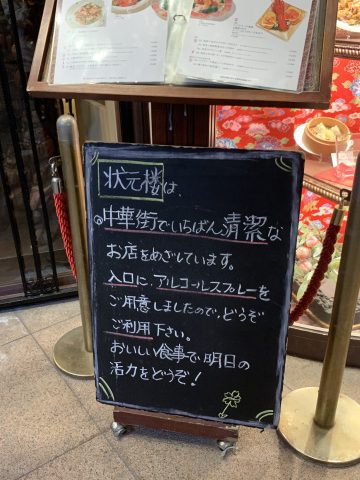 状元楼は、
中華街でいちばん清潔な
お店をめざしています。
入口に、アルコールスプレーを
ご用意しましたので、どうぞ
ご利用下さい。
おいしい食事で、明日の
活力をどうぞ！